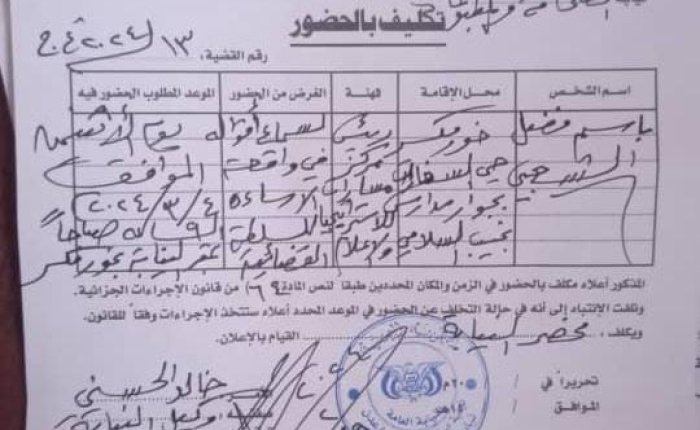 تكليف بالحضور
رقم القضية، ١٣/ ٢٠٢٤ ج.غ
اسم الشخص محل الإقامة المهنة الغرض من الحضور الموعد المطلوب الحضور فيه
باسم فضل خور مكسر رئيس لسماع أقواله يوم الأثنين
الشعبي حي السفارات مركز في واقعة الموافق
بجوار مدارس مسارات الإساءة ٢٠٢٤/٣/٤
نجيب السلامي للاستراتيجيا والإعلام للسلطة القضائية الساعة صباحاً
بمقر النيابة بخور مكسر
المذكور أعلاه مكلف بالحضور في الزمن والمكان المحددين طبقا لنص المادة ٦٩ من قانون الإجراءات الجزائية.
ونلفت الانتباه إلى أنه في حالة التخلف عن الحضور في الموعد المحدد أعلاه ستتخذ الإجراءات وفقاً للقانون.
ويكلف، محضر النيابة القيام بالإعلان.
تحريراً في / / ٢٠٠م
الموافق / / ١٤هـ
خالد الحسني
وكيل النيابة